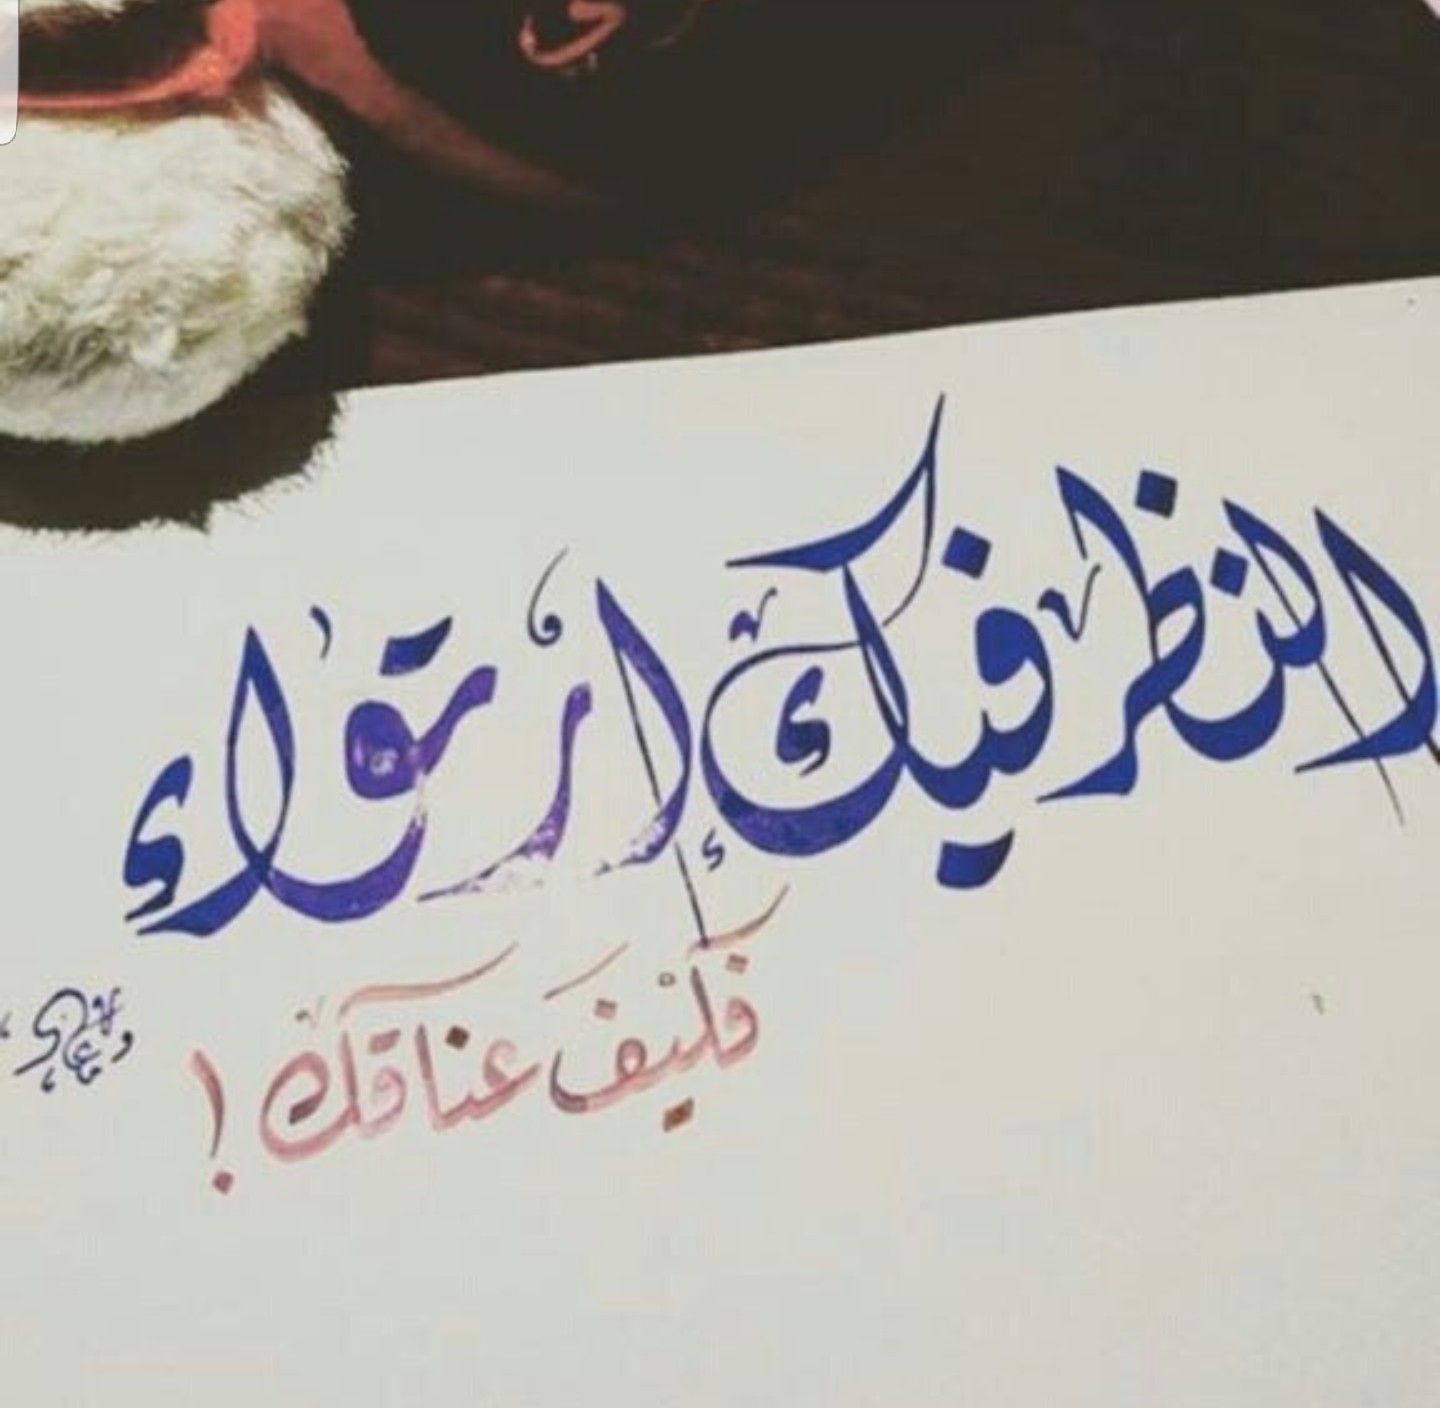 النظر فيك إرتواء
فكيف عناقك !